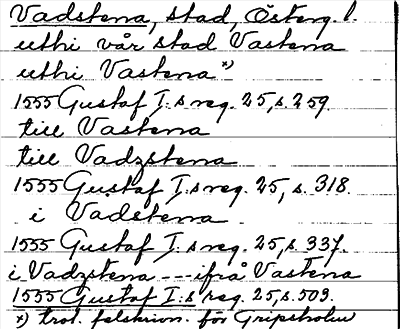 Vadstena, stad, Österg. l.
uthi vår stad Vastena
uthi Vastena x)
1555 Gustaf I:s reg. 25, s. 259.
till Vastena
till Vadzstena
1555 Gustaf I:s reg. 25, s. 318.
i Vadstena
1555 Gustaf I:s reg. 25, s. 337.
i Vadzstena --- ifrå Vastena
1555 Gustaf I:s reg. 25, s. 503.
x) trol. felskrivn. för Gripsholm